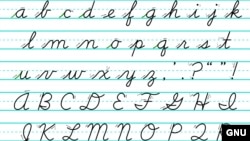 a b c d e f g h i j k
l m n o p q r s t
u v w x y z . ' , ? “ ” !
A B C D E F G H I
J K L M N O P Q
GNU